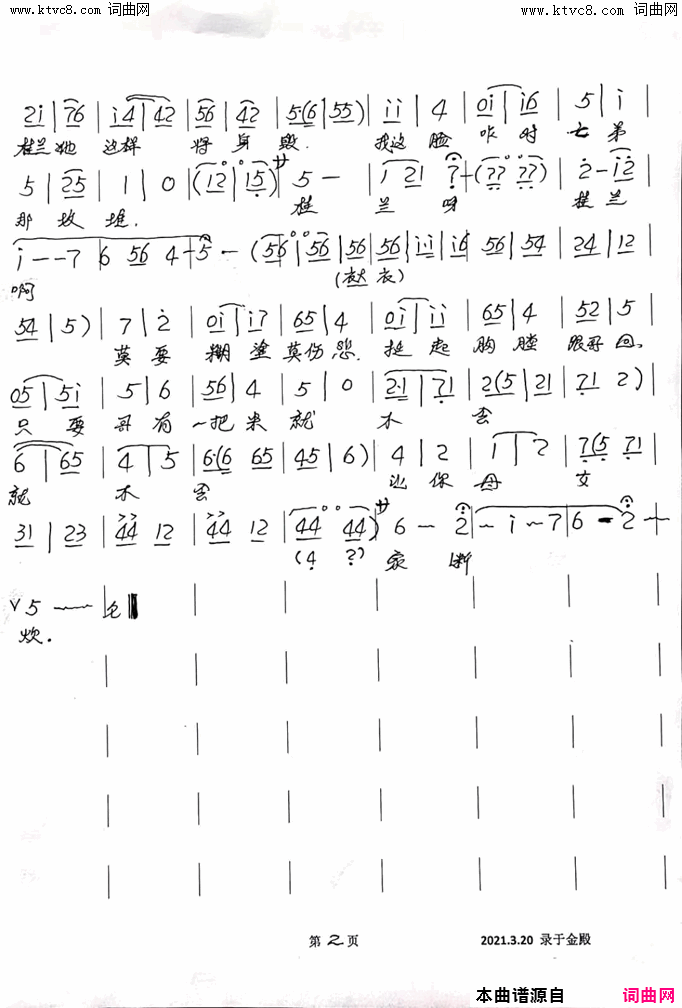 www.ktvc8.com 词曲网 www.ktvc8.com 词曲网
2i | 76 | i4 | 42 | 56 | 42 | 5·(6 | 55) | ii | 4 | 0i | i6 | 5 | i |
桂兰她 这样 将 身 毁. 我这 脸 咋 对 七 弟
5 | 25 | 1 | 0 | (12 | 15) 廾 5 — | 1 21 ? — (?? ??) | 2 - i2 |
那 坟 堆. 桂 兰 呀 桂兰
i — — 7 | 6 56 4 - 5 — (56 | 56 | 56 | 56 | ii | i6 | 56 | 54 | 24 | 12 |
啊
54 | 5) | 7 | 2 | 0i | i7 | 65 | 4 | 0i | ii | 65 | 4 | 52 | 5 |
莫 要 糊 塗 莫伤 悲. 挺 起 胸 膛 跟哥 回,
05 | 5i | 5 | 6 | 56 | 4 | 5 | 0 | 2·1 | 71 | 2(5 | 21 | 71 2) |
只 要 哥 有 一把 米 就 木
6 | 65 | 4 | 5 | 6·(6 65 | 45 | 6) | 4 | 2 | 1 | 2 | 7(5 71 |
就 木 让 你 母 女
31 | 23 | 44 12 | 44 12 | (44 44) 廾 6 — 2 | — i — 7 | 6 — 2 —
(4 ?) 家 断
∨ 5 —— |
炊.
第 2 页 2021.3.20 录于金殿
本曲谱源自 词曲网